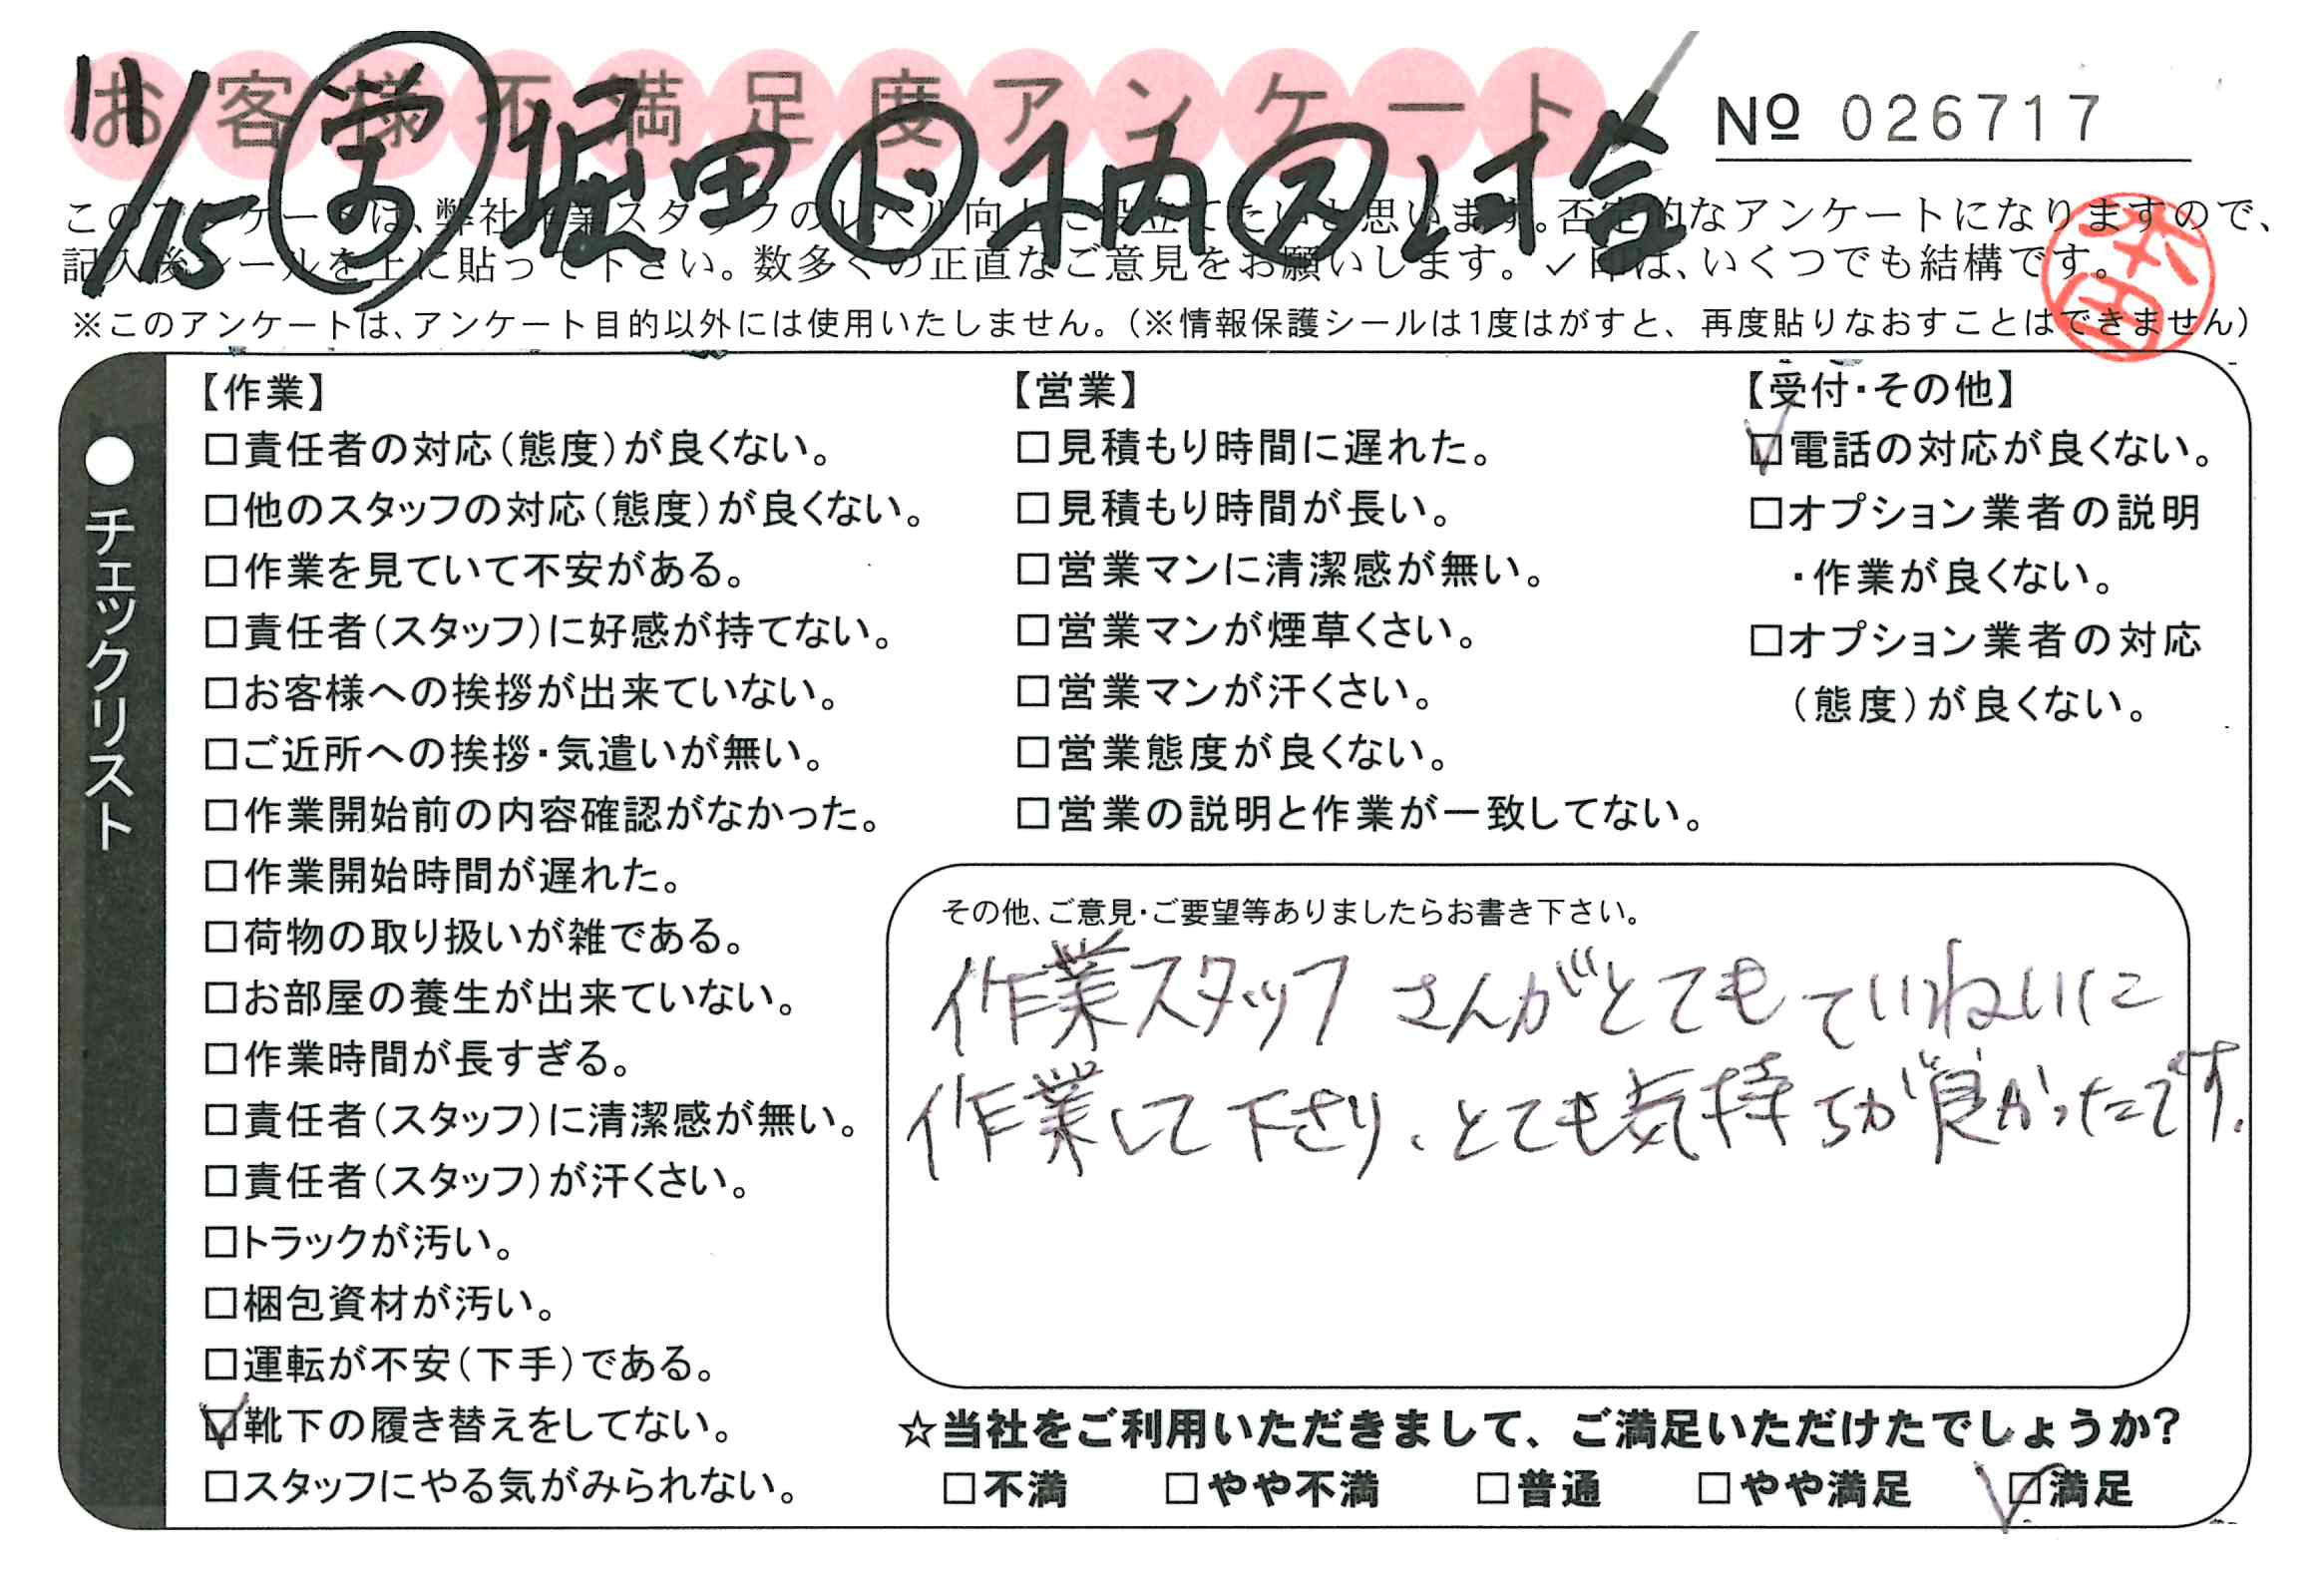 お客様不満足度アンケート
№ 026717
11/15 堀田
このアンケートは、弊社作業スタッフのレベル向上に役立てたいと思います。否定的なアンケートになりますので、
記入後シールを上に貼って下さい。数多くの正直なご意見をお願いします。✓印は、いくつでも結構です。
※このアンケートは、アンケート目的以外には使用いたしません。(※情報保護シールは1度はがすと、再度貼りなおすことはできません)
●チェックリスト
【作業】
□責任者の対応(態度)が良くない。
□他のスタッフの対応(態度)が良くない。
□作業を見ていて不安がある。
□責任者(スタッフ)に好感が持てない。
□お客様への挨拶が出来ていない。
□ご近所への挨拶・気遣いが無い。
□作業開始前の内容確認がなかった。
□作業開始時間が遅れた。
□荷物の取り扱いが雑である。
□お部屋の養生が出来ていない。
□作業時間が長すぎる。
□責任者(スタッフ)に清潔感が無い。
□責任者(スタッフ)が汗くさい。
□トラックが汚い。
□梱包資材が汚い。
□運転が不安(下手)である。
☑靴下の履き替えをしてない。
□スタッフにやる気がみられない。
【営業】
□見積もり時間に遅れた。
□見積もり時間が長い。
□営業マンに清潔感が無い。
□営業マンが煙草くさい。
□営業マンが汗くさい。
□営業態度が良くない。
□営業の説明と作業が一致してない。
【受付・その他】
☑電話の対応が良くない。
□オプション業者の説明
・作業が良くない。
□オプション業者の対応
(態度)が良くない。
その他、ご意見・ご要望等ありましたらお書き下さい。
作業スタッフさんがとてもていねいに
作業して下さり、とても気持ちが良かったです。
☆当社をご利用いただきまして、ご満足いただけたでしょうか?
□不満 □やや不満 □普通 □やや満足 ☑満足